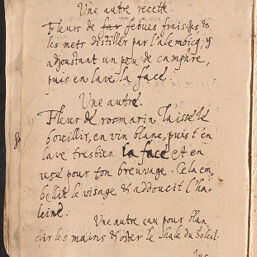 Une autre recete.
Fleurs de far febues fraisches
les metz distiller par l'alembicq, y
adjoustant un peu de camphre,
puis en lave la face.
Une autre.
Fleur de rosmarin laisse la
bouillir en vin blanc, puis t'en
lave tresbien la face et en
use pour ton breuvage. Cela em
bellit le visage & addoucit l'ha
leine.
Une autre eau pour blan
chir les mains & oster le hasle du Soleil.